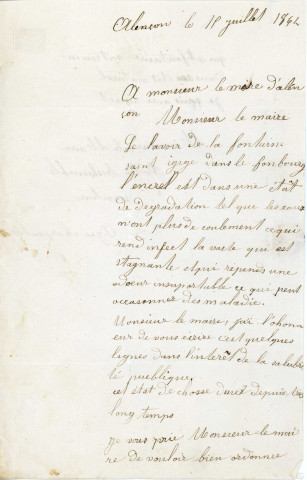 Alençon le 15 juillet 1862
A monsieur le maire d'alen
çon Monsieur le maire
Le lavoir de la fontaine
saint igige dans le fonbourg
l'encrel est dans une état
de degradation tel que les eaux
n'ont plus de coulement ce qui
rend infect la vase qui est
stagnante et qui repends une
odeur insuportable ce qui peut
occasionner des maladie.
Monsieur le maire, j'ai l'honn
eur de vous écrire cest quelques
lignes dans l'interêt de la salubri
té puebligue,
cet état de chosse dure depuis
long temps
je vous prie Monsieur le mai
re de vouloir bien ordonnée